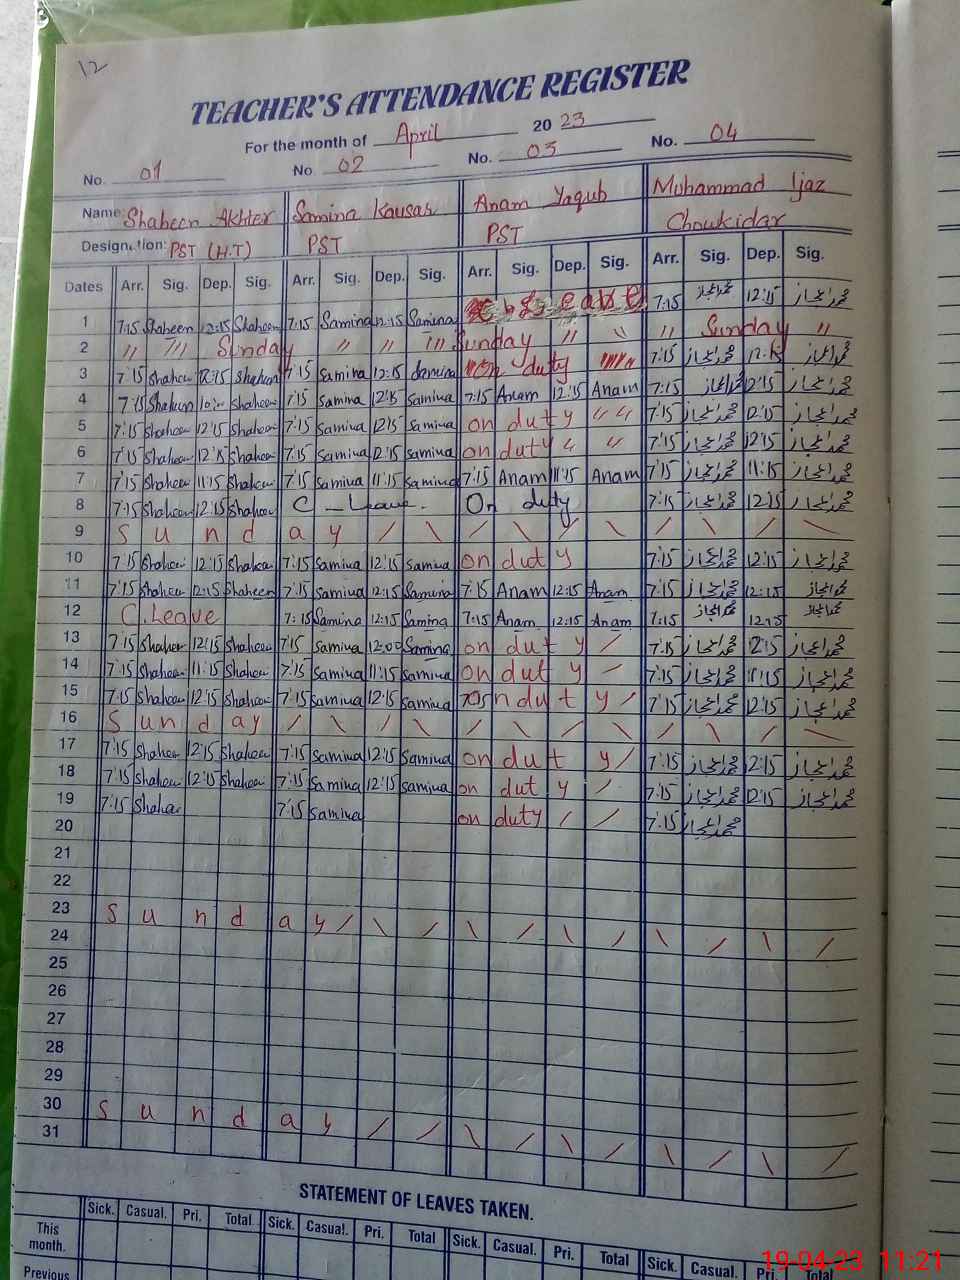 12
TEACHER'S ATTENDANCE REGISTER
For the month of April 2023
No. 01 No. 02 No. 03 No. 04
Name: Shaheen Akhter Samina Kausar Anam Yaqub Muhammad Ijaz
Designation: PST (H.T) PST PST Choukidar
Dates Arr. Sig. Dep. Sig. Arr. Sig. Dep. Sig. Arr. Sig. Dep. Sig. Arr. Sig. Dep. Sig.
1 7:15 Shaheen 12:15 Shaheen 7:15 Samina 12:15 Samina Leave 7:15 محمد اعجاز 12:15 محمد اعجاز
2 " " Sunday " " " Sunday " " " Sunday "
3 7:15 Shaheen 12:15 Shaheen 7:15 Samina 12:15 Samina on duty 7:15 محمد اعجاز 12:15 محمد اعجاز
4 7:15 Shaheen Shaheen 7:15 Samina 12:15 Samina 7:15 Anam 12:15 Anam 7:15 محمد اعجاز 12:15 محمد اعجاز
5 7:15 Shaheen 12:15 Shaheen 7:15 Samina 12:15 Samina on duty " " 7:15 محمد اعجاز 12:15 محمد اعجاز
6 7:15 Shaheen 12:15 Shaheen 7:15 Samina 12:15 Samina on duty " " 7:15 محمد اعجاز 12:15 محمد اعجاز
7 7:15 Shaheen 11:15 Shaheen 7:15 Samina 11:15 Samina 7:15 Anam 11:15 Anam 7:15 محمد اعجاز 11:15 محمد اعجاز
8 7:15 Shaheen 12:15 Shaheen C-Leave. On duty 7:15 محمد اعجاز 12:15 محمد اعجاز
9 Sunday / \ / \ / \ / \ / \
10 7:15 Shaheen 12:15 Shaheen 7:15 Samina 12:15 Samina on duty 7:15 محمد اعجاز 12:15 محمد اعجاز
11 7:15 Shaheen 12:15 Shaheen 7:15 Samina 12:15 Samina 7:15 Anam 12:15 Anam 7:15 محمد اعجاز 12:15 محمد اعجاز
12 C.Leave 7:15 Samina 12:15 Samina 7:15 Anam 12:15 Anam 7:15 محمد اعجاز 12:15 محمد اعجاز
13 7:15 Shaheen 12:15 Shaheen 7:15 Samina 12:00 Samina on duty / 7:15 محمد اعجاز 12:15 محمد اعجاز
14 7:15 Shaheen 11:15 Shaheen 7:15 Samina 11:15 Samina on duty / 7:15 محمد اعجاز 11:15 محمد اعجاز
15 7:15 Shaheen 12:15 Shaheen 7:15 Samina 12:15 Samina on duty / 7:15 محمد اعجاز 12:15 محمد اعجاز
16 Sunday / \ / \ / \ / \ / \
17 7:15 Shaheen 12:15 Shaheen 7:15 Samina 12:15 Samina on duty / 7:15 محمد اعجاز 12:15 محمد اعجاز
18 7:15 Shaheen 12:15 Shaheen 7:15 Samina 12:15 Samina on duty / 7:15 محمد اعجاز 12:15 محمد اعجاز
19 7:15 Shaheen 7:15 Samina on duty / / 7:15 محمد اعجاز
20
21
22
23 Sunday / \ / \ / \ / \ / \ /
24
25
26
27
28
29
30 Sunday / / \ / \ / \ / \ /
31
STATEMENT OF LEAVES TAKEN.
Sick. Casual. Pri. Total Sick. Casual. Pri. Total Sick. Casual. Pri. Total Sick. Casual. Pri. Total
This month.
Previous
19-04-23 11:21